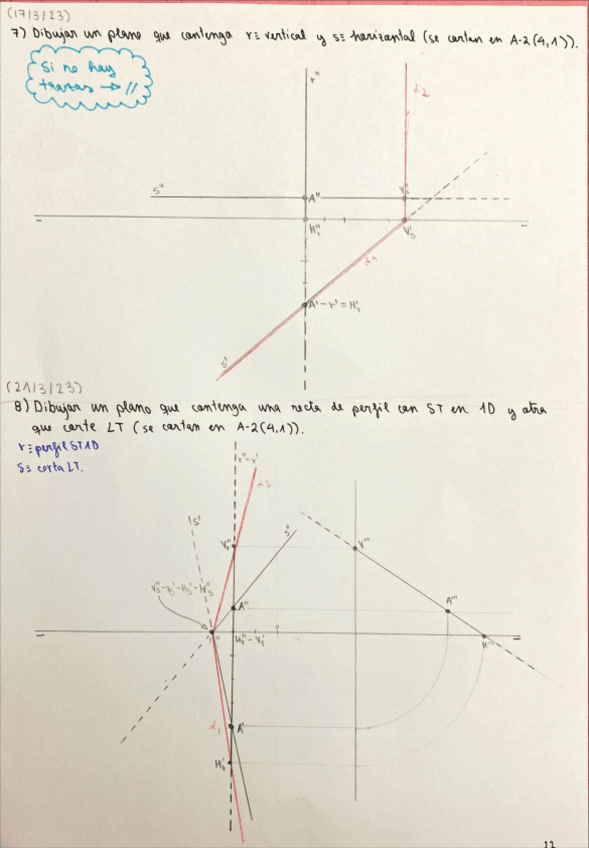 (17/3/23)
7) Dibujar un plano que contenga r≡ vertical y s≡ horizontal (se cortan en A-2(4,1)).
Si no hay
trazas → //
r''
α2
s''
A''
Vs''
Hr''
Vs'
α1
A'-r'≡Hr'
s'
(21/3/23)
8) Dibujar un plano que contenga una recta de perfil con ST en 1D y otra
que corte LT (se cortan en A-2(4,1)).
r≡ perfil ST1D
s≡ corta LT.
r''-r'
α2
s'
s''
Vr''
V'''
Vs''-Vs'-Hs'-Hs''
A''
A'''
Hr''-Vr'
H'''
α1
A'
Hr'
12